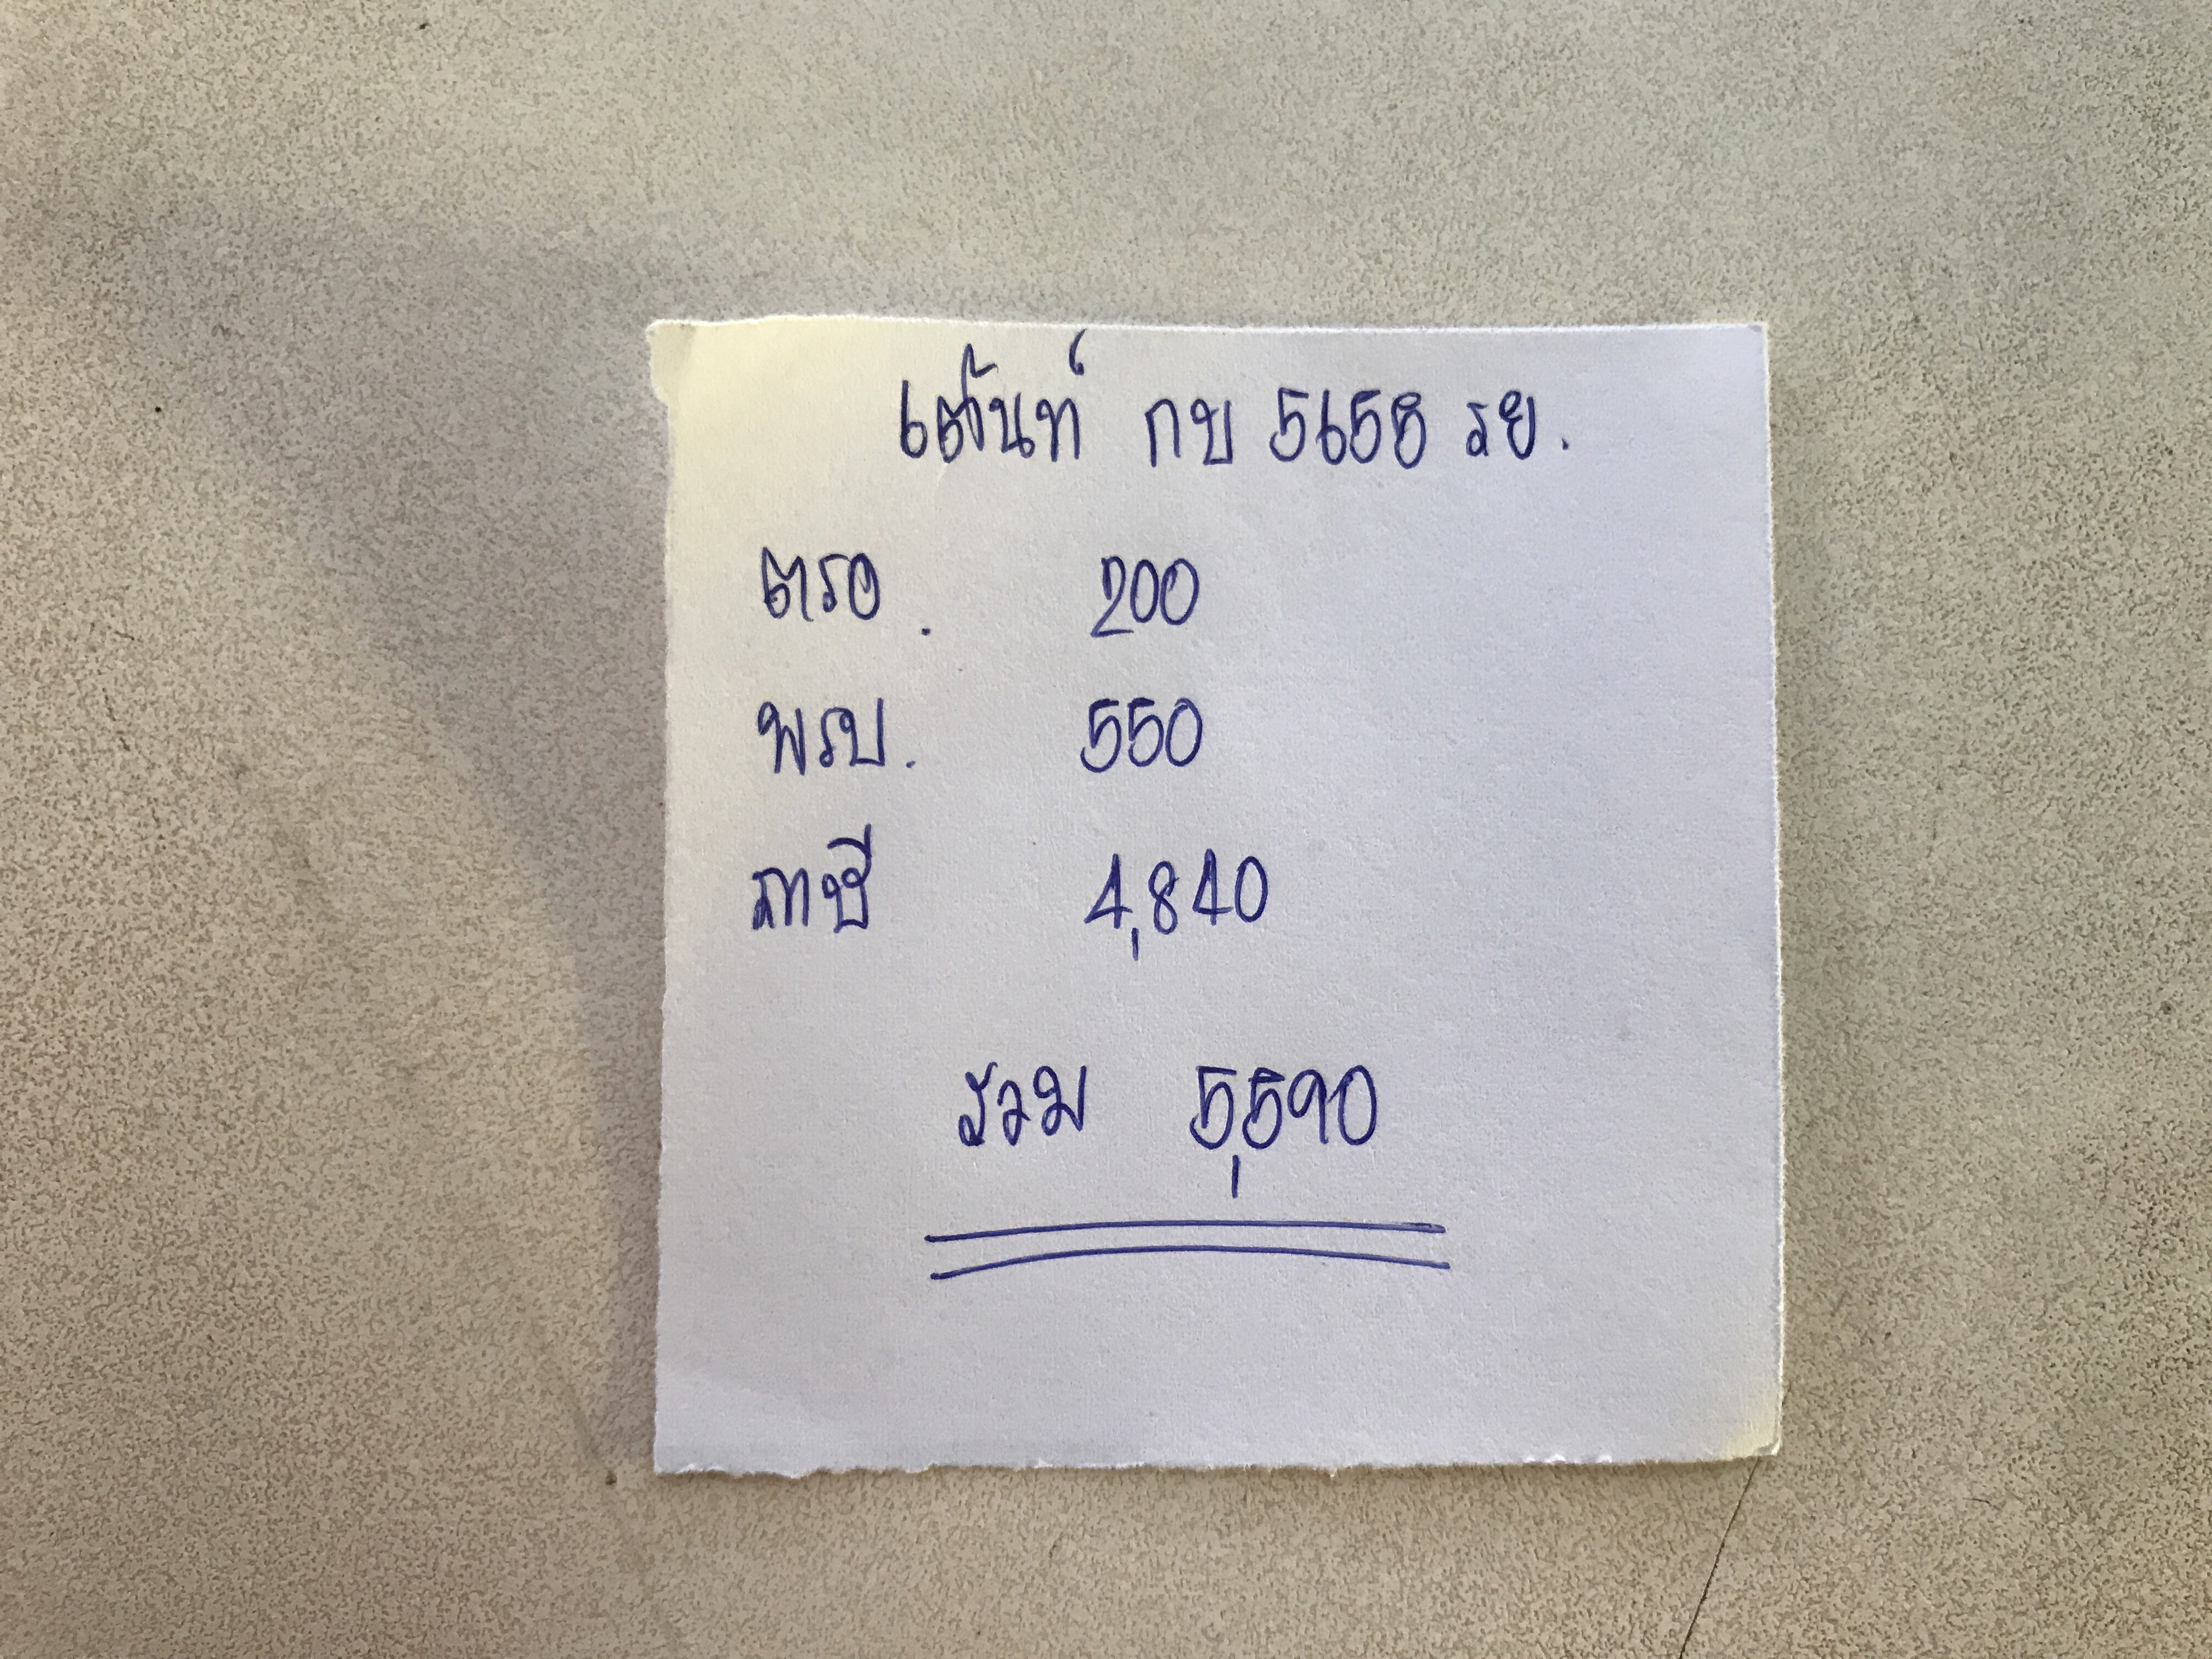 เต๊นท์ กบ 5658 รย.
ตรอ. 200
พรบ. 550
ภาษี 4,840
รวม 5,590